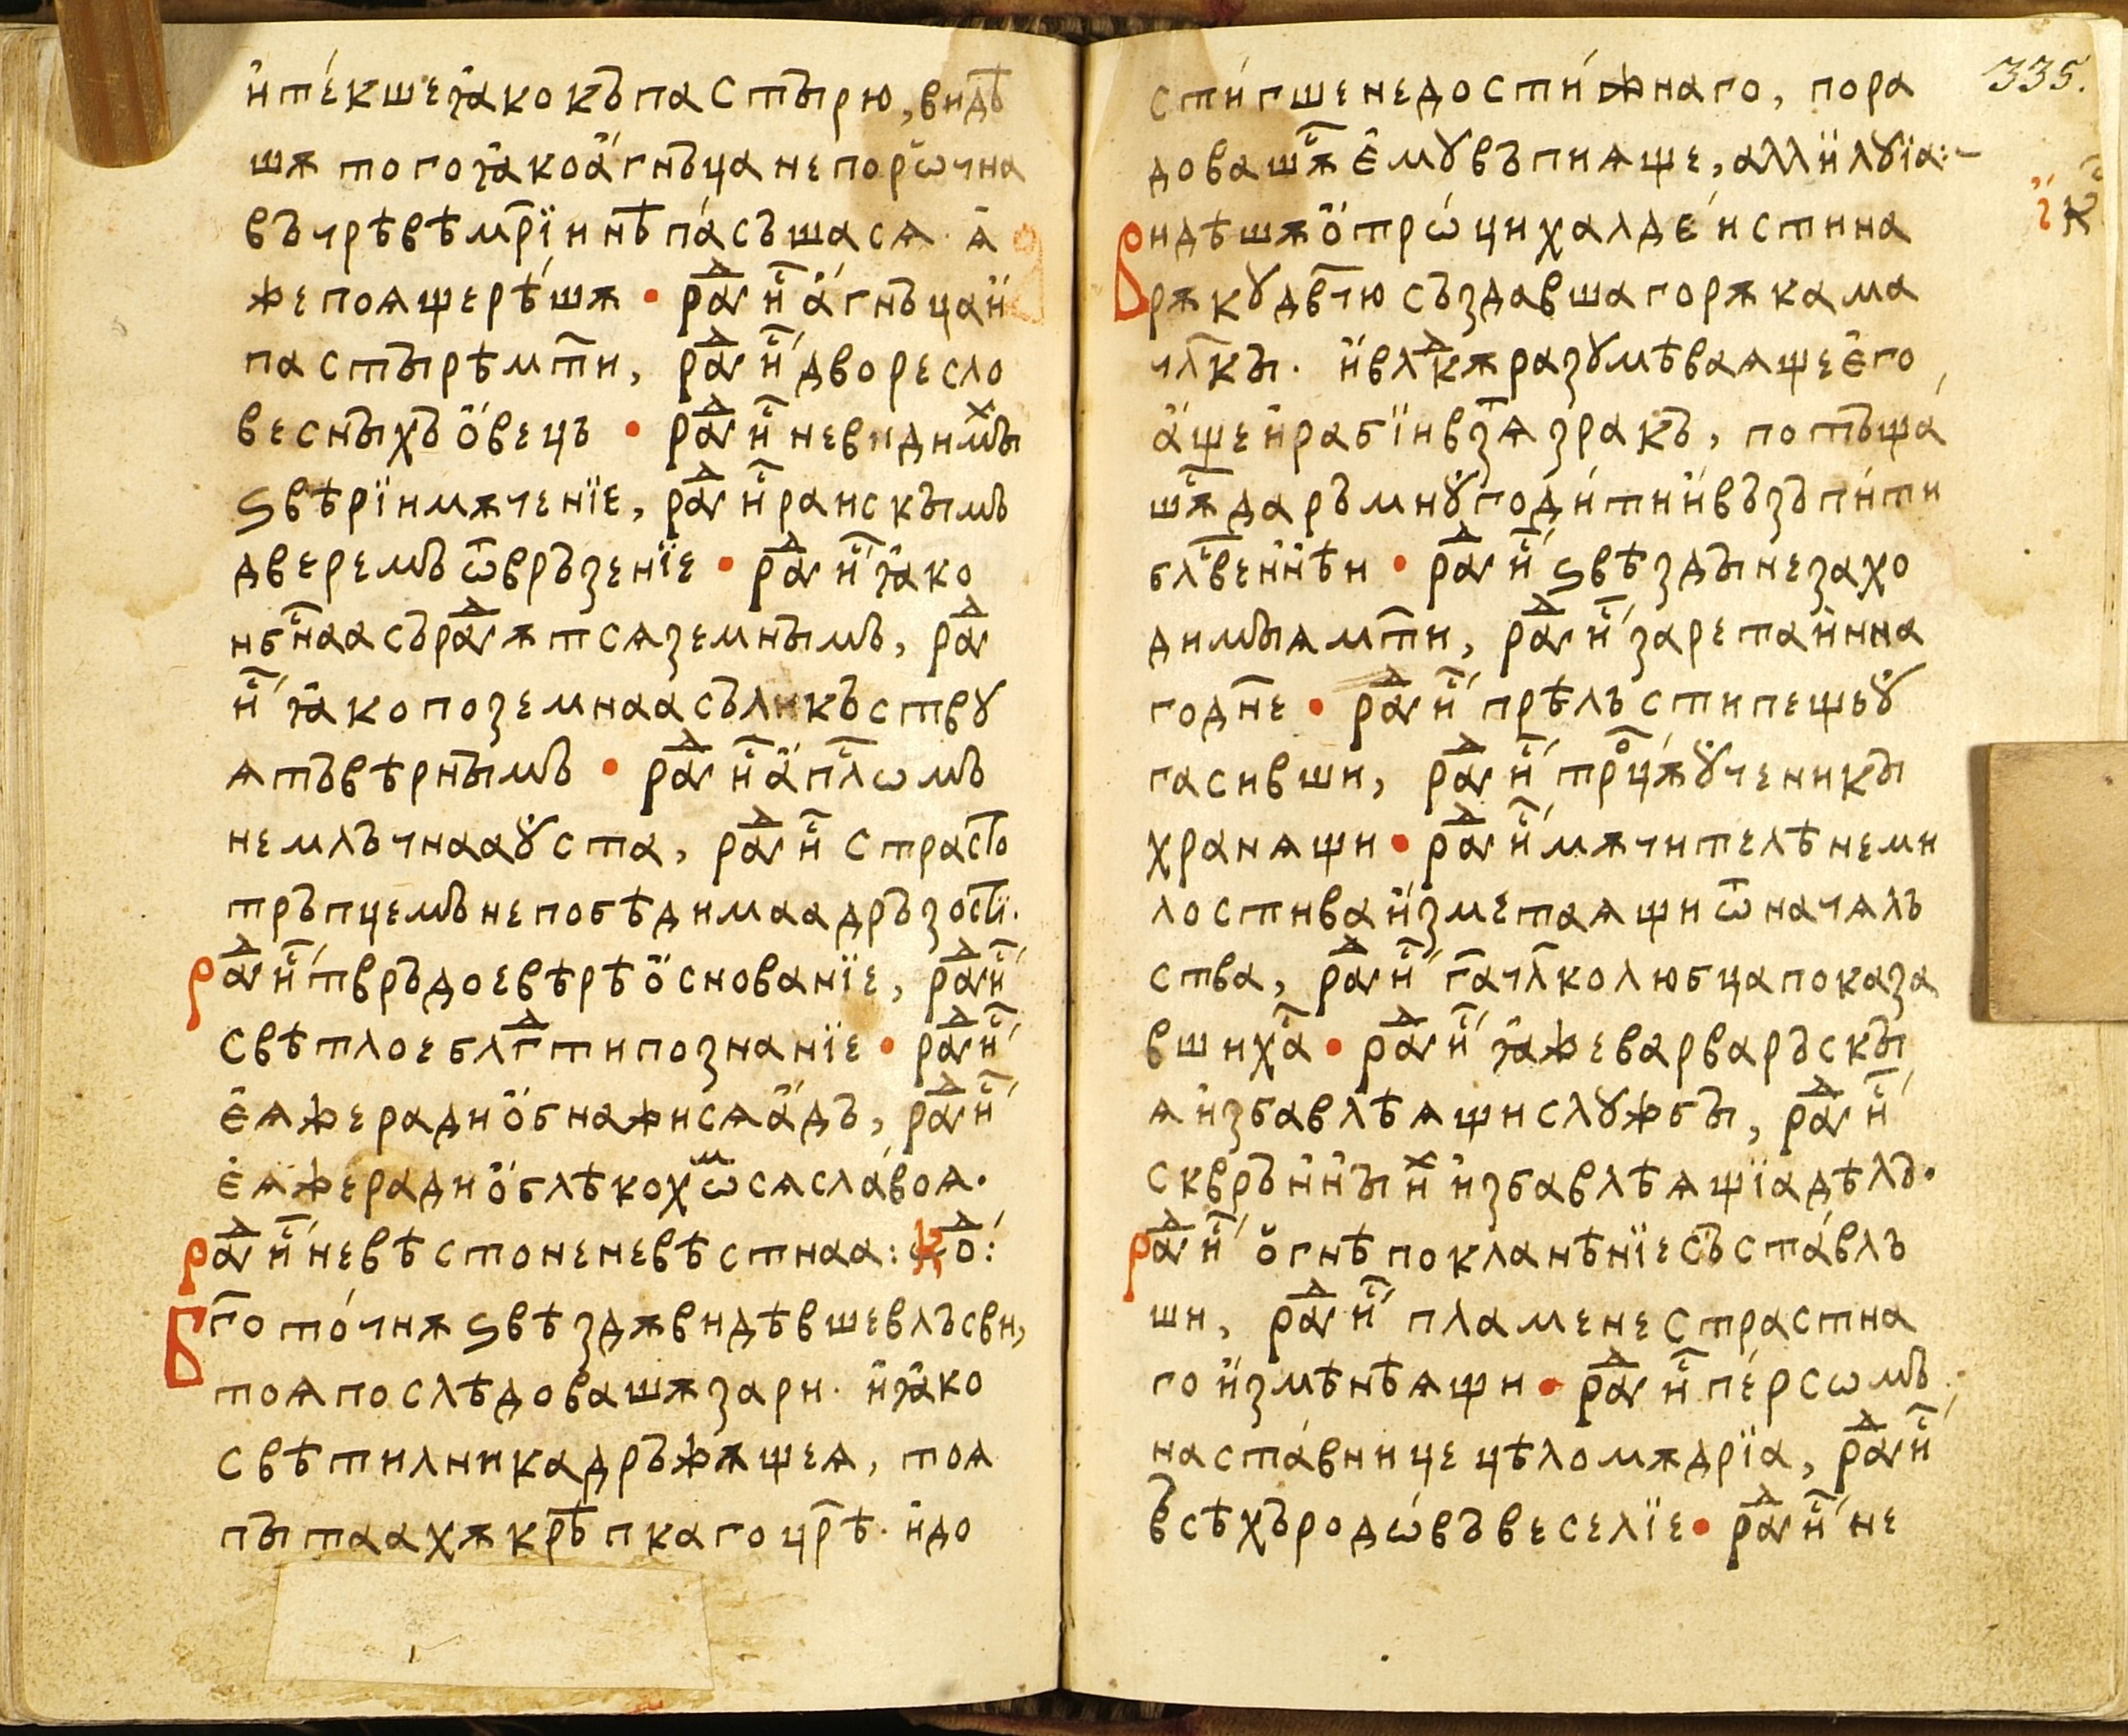 и҆те́кшеꙗ҆кокъпастырю, видѣ
шѫ тогоꙗ҆коа҆́гнъцанепорѡ́чна
въчрѣвѣмр҃їиинѣ пасъшасѧ. а҆
жепоѧщерѣ́шѫ • раⷣ҇и҆с҇ а҆́гнъцаи҆
пастырѣмт҃и, раⷣ҇и҆с҇ двореслo
весныхъ ѻ҆́вець • раⷣ҇и҆с҇ невидимыⷯ
ѕвѣрїимѫченїе, раⷣ҇и҆с҇ раискымь
двереⷨь ѿвръзенїе • раⷣ҇и҆с҇ ꙗ҆ко
нбⷭ҇наасъраⷣ҇ꙋѫтсѧземнымь, раⷣ҇
и҆с҇ ꙗ҆копоземнаасъликъствꙋ
ѧтъвѣрнымь • раⷣ҇и҆с҇ а҆пⷭ҇лѡмь
немлъчнааꙋ҆ста, раⷣ҇и҆с҇ страсто
тръпцемьнепобѣдимаадръзости.
раⷣ҇и҆с҇ твръдоевѣрѣѻ҆снованїе, раⷣ҇и҆с҇
свѣтлоеблгⷣтипознанїе • раⷣ҇и҆с҇
є҆ѧжерадиѻ҆бнажисѧа҆́дъ, раⷣ҇и҆с҇
є҆ѧжерадиѻ҆блѣкохѡⷨсѧсла́воѧ.
раⷣ҇и҆с҇ невѣстоненевѣстнаа: коⷣ:
Бг҃ото́чнѫ ѕвѣздѫвидѣвшевлъсви,
тоѧпослѣдовашѫзари. и҆ꙗ҆ко
свѣтилникадръжѫщеѧ, тоѧ
пытаахѫкрѣпкагоцр҃ѣ. и҆до
335.
сти́гшенедости́жнаго, пора
довашѫсѧ є҆мꙋвъпиѧще, аллилꙋїа:~
і҃ к҃
Видѣшѫѻ҆трѡ́цихалде́истина
рѫкꙋдв҃чюсъздавшагорѫкама
чл҃кы. и҆влⷣкѫразꙋмѣваѧщеє҆го,
а҆́щеи҆рабїивзѧ зракъ, потъща́
шѫсѧ даръмиꙋ҆годи́тии҆възъпи́ти
блⷭ҇веннѣи • раⷣ҇и҆с҇ ѕвѣздынезахо
димыѧмт҃и, раⷣ҇и҆с҇ заретаи҆нна
годн҃е • раⷣ҇и҆с҇ прѣлъстипещьꙋ҆
гасивши, раⷣ҇и҆с҇ трⷪ҇цѫꙋ҆ченикы
хранѧщи • раⷣ҇и҆с҇ мѫчителѣнеми
лостиваи҆зметаѧщи ѿначѧлъ
ства, раⷣ҇и҆с҇ г҃ачл҃колюбцапоказа
вшихⷭ҇а • раⷣ҇и҆с҇ ꙗ҆жеварварьскы
ѧи҆збавлѣѧщислꙋжбы, раⷣ҇и҆с҇
сквръннныⷯи҆ и҆збавлѣѧщїадѣлъ.
раⷣ҇и҆с҇ ѻ҆гнѣ покланѣнїесъста́вль
ши, раⷣ҇и҆с҇ пламенестрастна
гои҆змѣнѣѧщи • раⷣ҇и҆с҇ пе́рсѡмь
наста́вницецѣломѫдрїа, раⷣ҇и҆с҇
всѣхъродѡ́въвеселїе • раⷣ҇и҆с҇ не